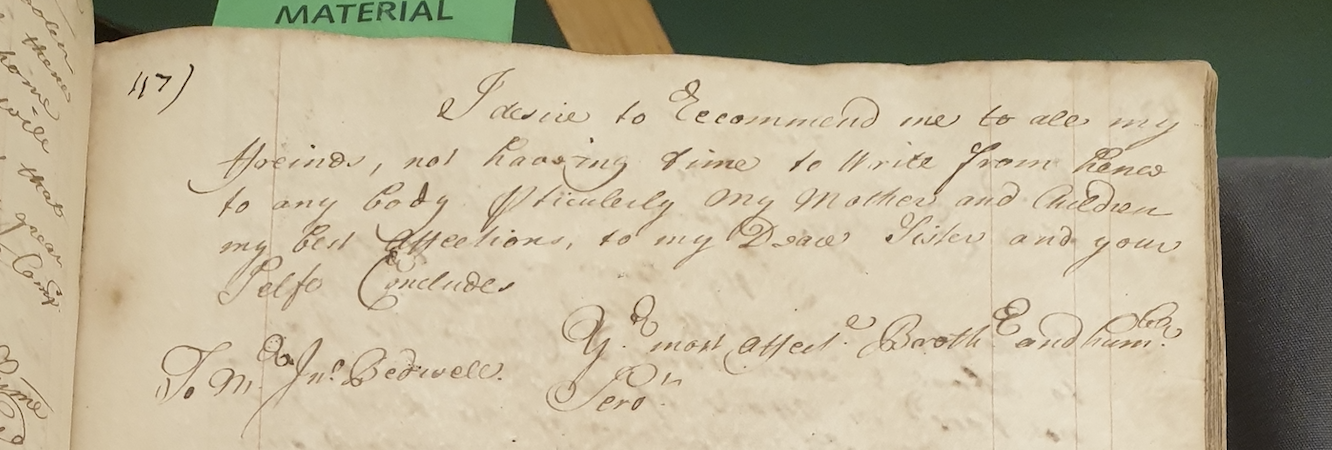 MATERIAL
117)
I desire to Reccommend me to all my
ffreinds, not haveing time to Write from hence
to any body pticulerly my Mother and Children
my best Affections, to my Dear Sister and your
Selfe Concludes
Yr. most affectt. Brothr and humble
To Mr. Jno. Bedwell.
Servt.